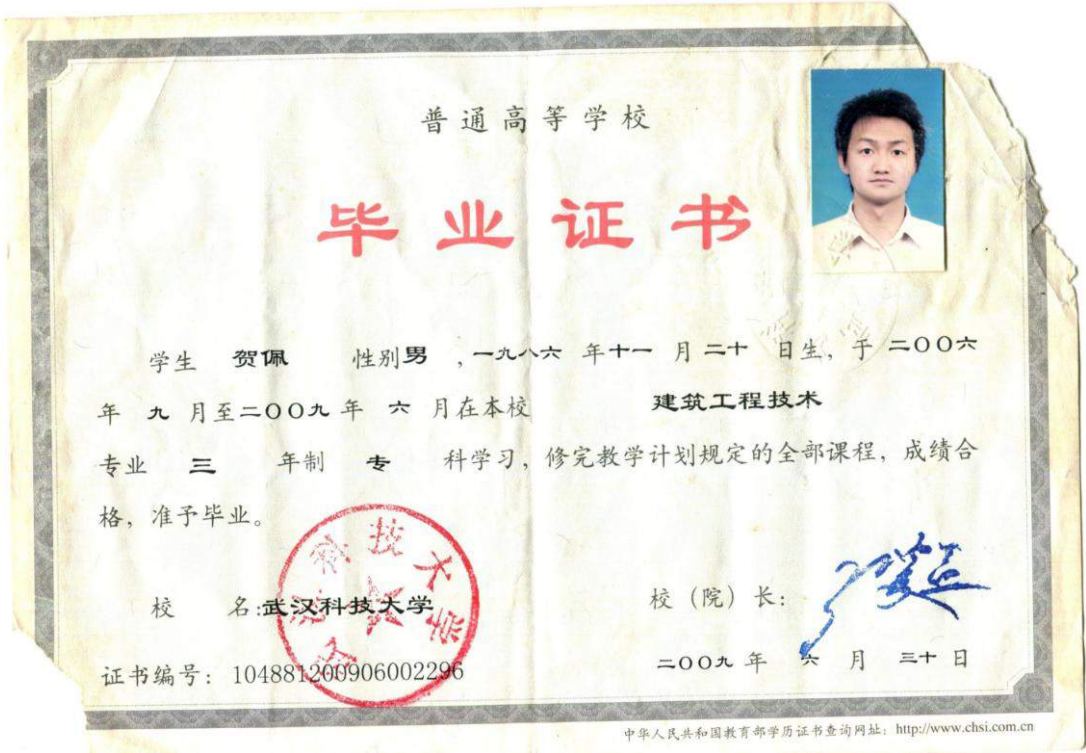 普通高等学校
毕业证书
学生 贺佩 性别男,一九八六年十一月二十日生,于二〇〇六
年九月至二〇〇九年六月在本校 建筑工程技术
专业 三 年制 专 科学习,修完教学计划规定的全部课程,成绩合
格,准予毕业。
校 名:武汉科技大学
武汉科技大学
校(院)长:
证书编号:104881200906002296
二〇〇九年六月三十日
中华人民共和国教育部学历证书查询网址:http://www.chsi.com.cn